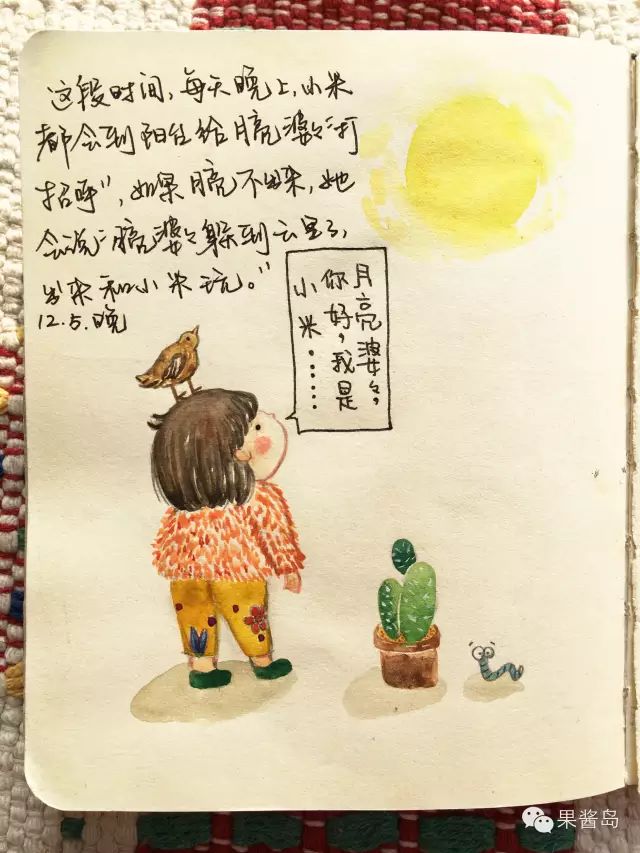 这段时间,每天晚上,小米
都会到阳台给月亮婆々“打
招呼”,如果月亮不出来,她
会说:“月亮婆々躲到云里了,
出来和小米玩。”
12.5.晚
月亮婆々,
你好,我是
小米……
果酱岛